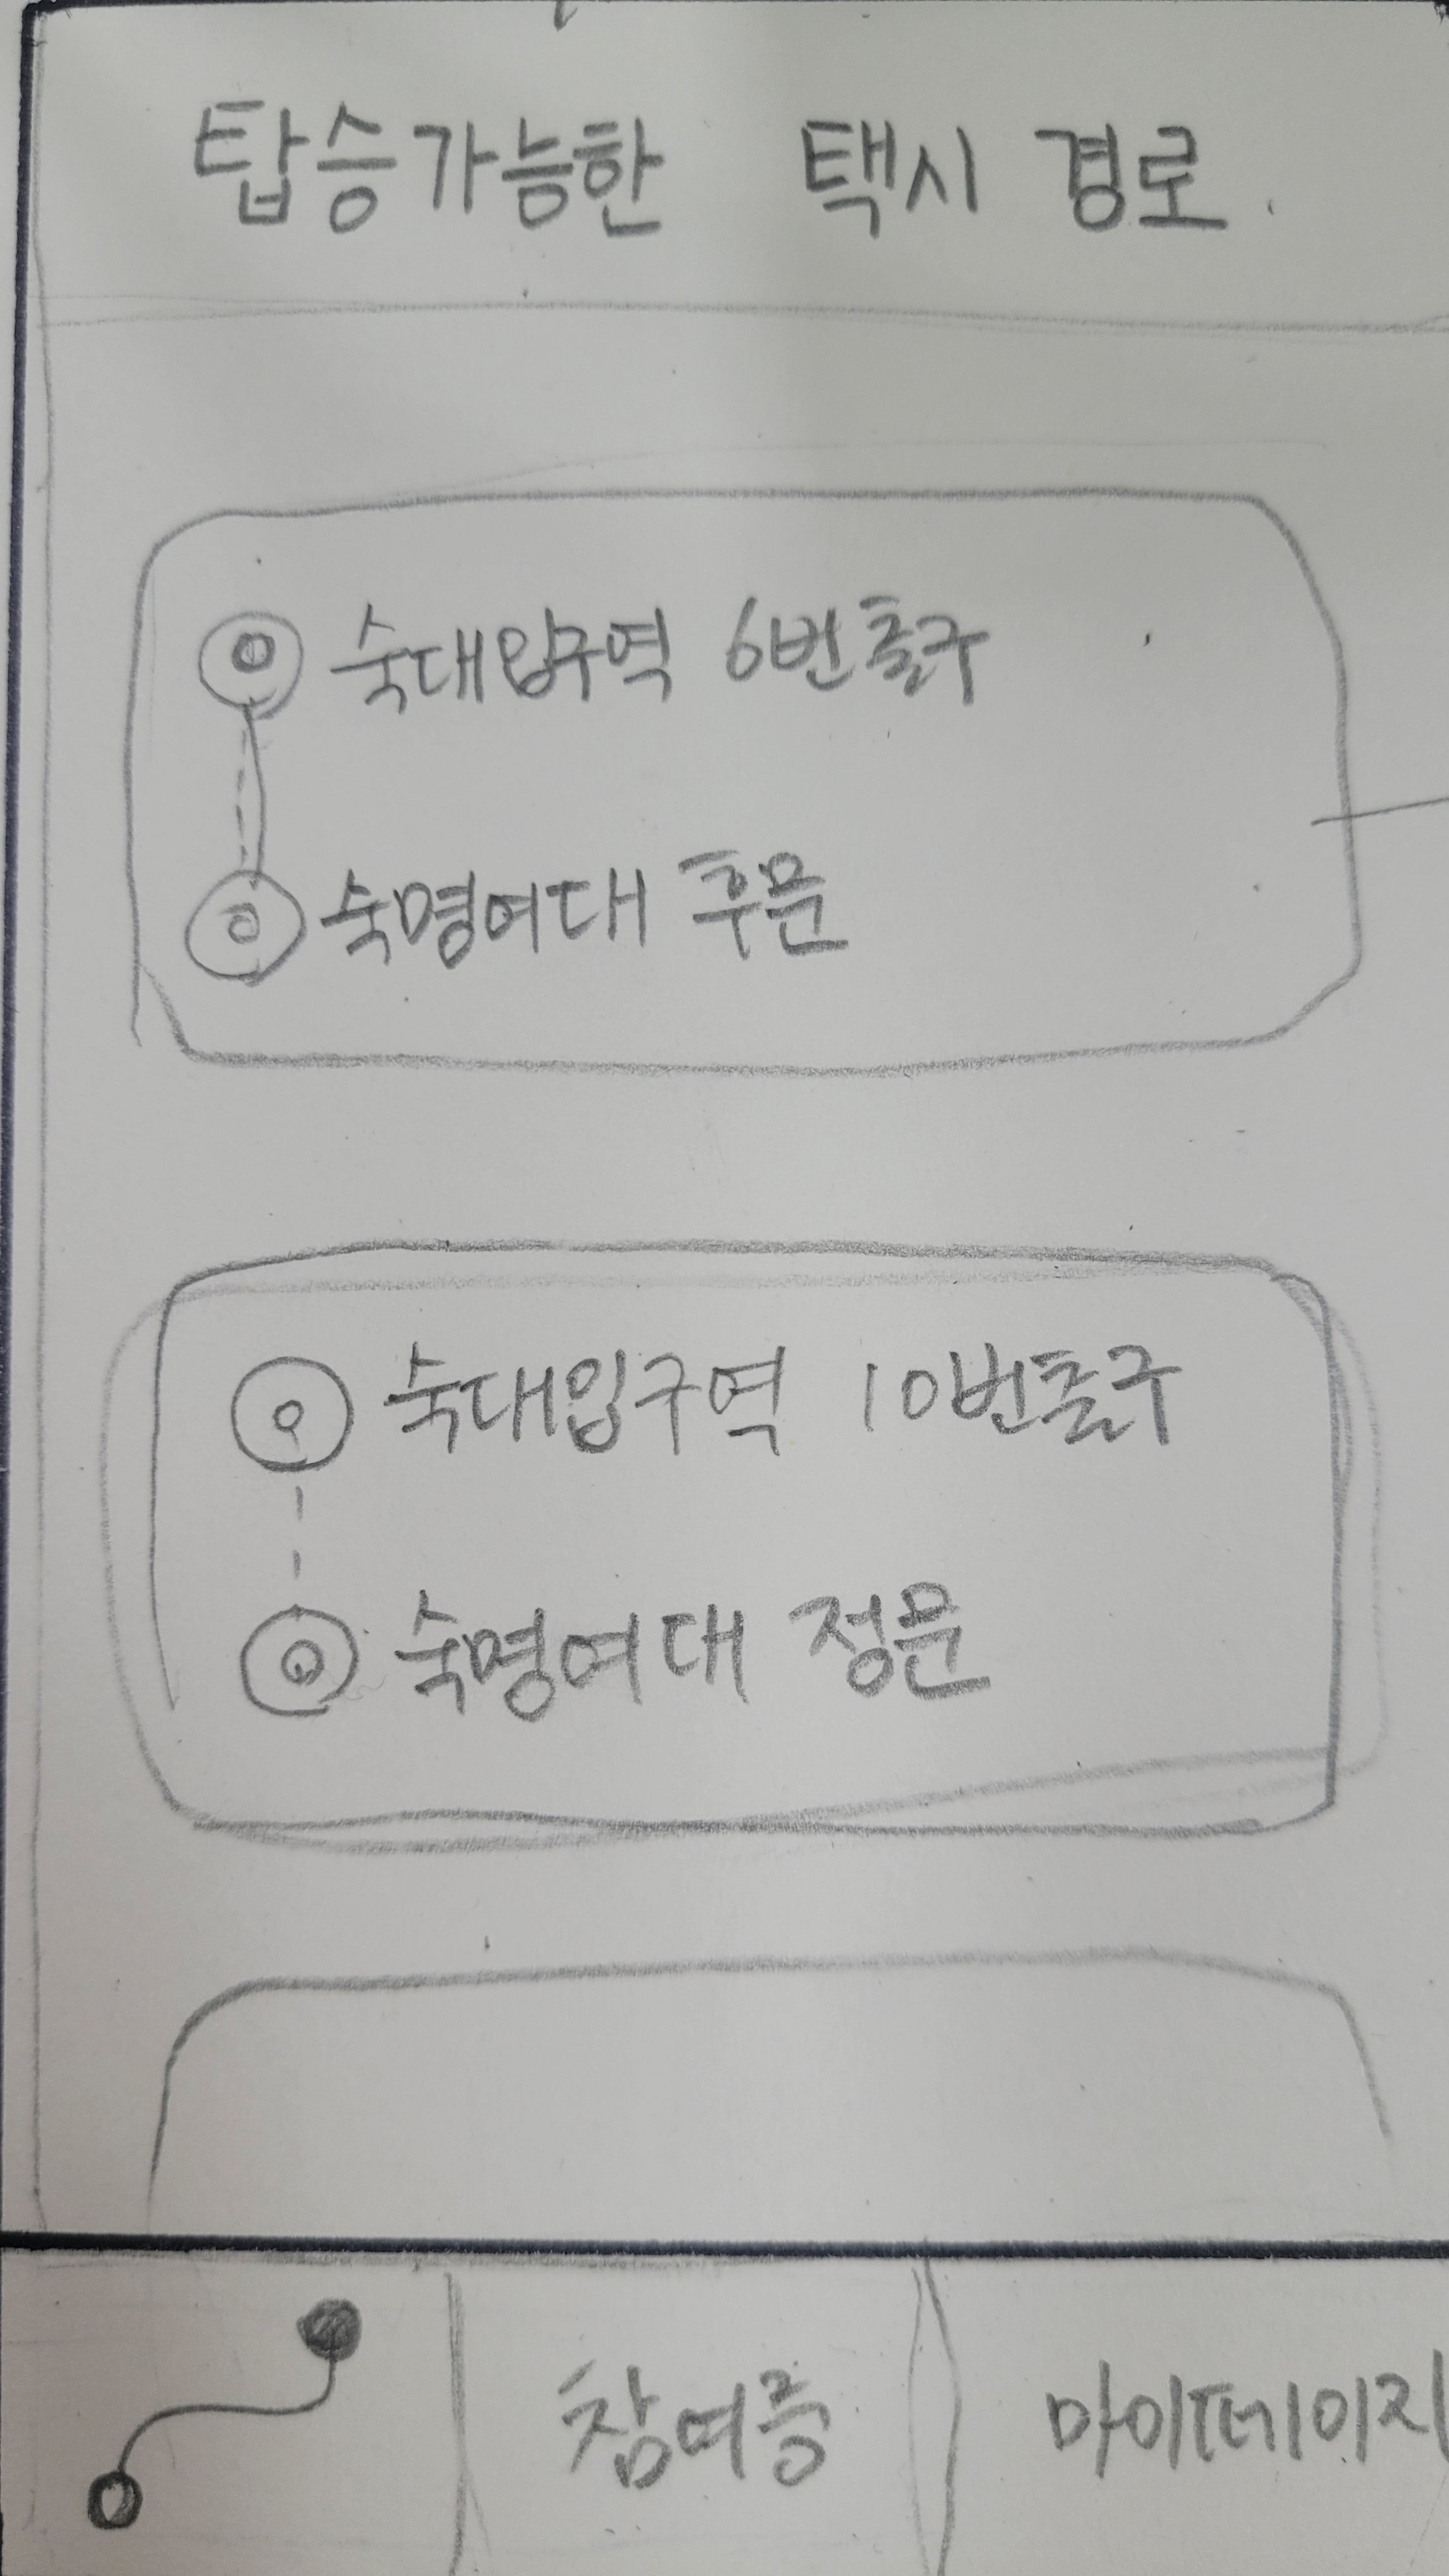 탑승가능한 택시 경로.
숙대입구역 6번출구
숙명여대 후문
숙대입구역 10번출구
숙명여대 정문
참여중 마이페이지